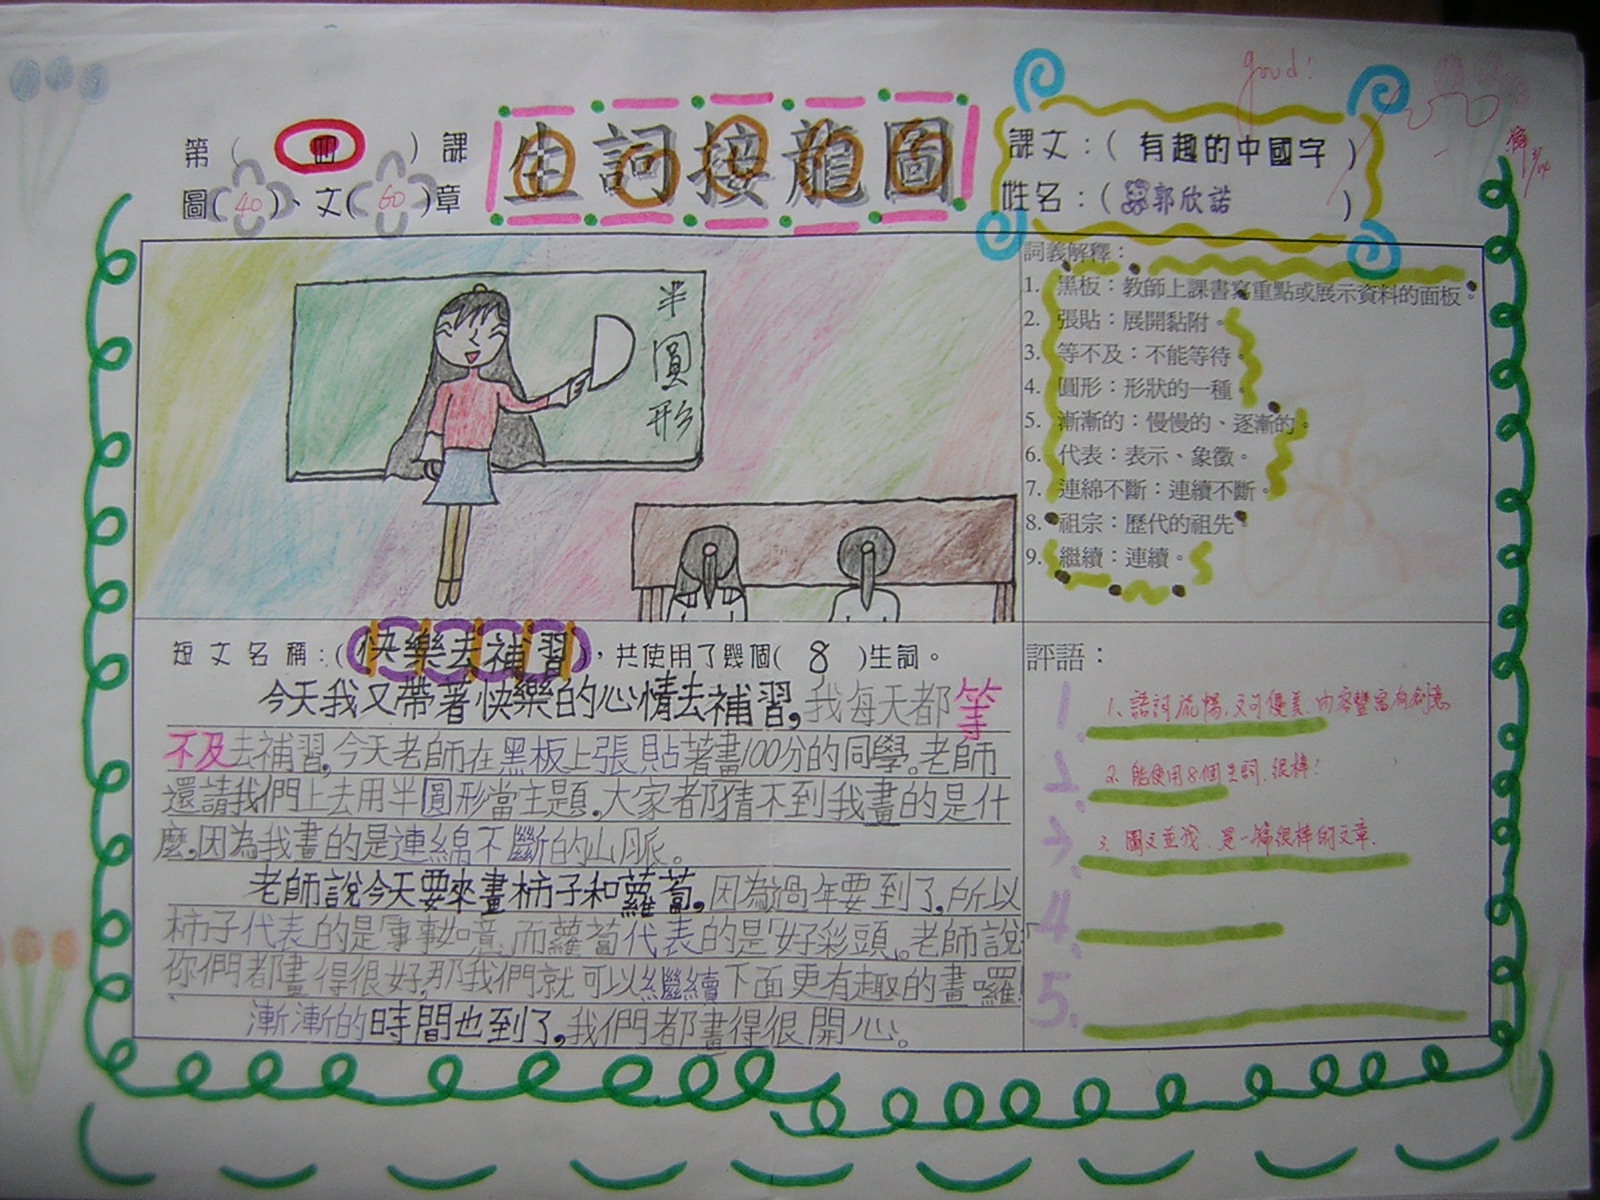 第( 四 )課
圖(40)、文(60)章
生詞接龍圖
good!
課文：( 有趣的中國字 )
姓名：( 郭欣諾 )
半圓形
詞義解釋：
1. 黑板：教師上課書寫重點或展示資料的面板。
2. 張貼：展開黏附。
3. 等不及：不能等待。
4. 圓形：形狀的一種。
5. 漸漸的：慢慢的、逐漸的。
6. 代表：表示、象徵。
7. 連綿不斷：連續不斷。
8. 祖宗：歷代的祖先。
9. 繼續：連續。
短文名稱：(快樂去補習)，共使用了幾個( 8 )生詞。
今天我又帶著快樂的心情去補習，我每天都等
不及去補習，今天老師在黑板上張貼著畫100分的同學。老師
還請我們上去用半圓形當主題，大家都猜不到我畫的是什
麼，因為我畫的是連綿不斷的山脈。
老師說今天要來畫柿子和蘿蔔，因為過年要到了，所以
柿子代表的是「事事如意」而蘿蔔代表的是「好彩頭」。老師說「
你們都畫得很好，那我們就可以繼續下面更有趣的畫囉！
漸漸的時間也到了，我們都畫得很開心。
評語：
1、語詞流暢，文句優美，內容豐富有創意
2、能使用8個生詞，很棒！
3、圖文並茂，是一篇很棒的文章。
4.
5.